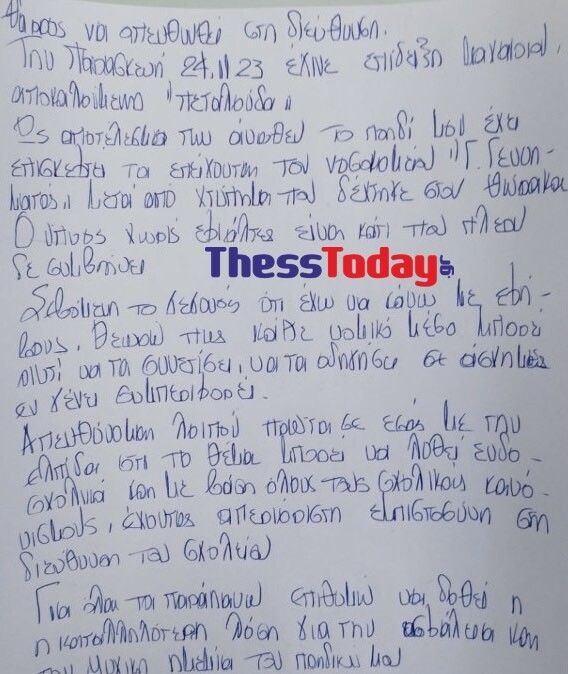 θάρρος να απευθυνθεί στη διεύθυνση.
Την Παρασκευή 24.11.23 έγινε επίδειξη
αποκαλούμενο "πεταλούδα"
Ως αποτέλεσμα των άνωθεν το παιδί μου έχει
επισκεφτεί τα επείγοντα του νοσοκομείου "Γ. Γεννη-
ματάς" μετά από χτύπημα που δέχτηκε στον θώρακα
Ο ύπνος χωρίς εφιάλτες είναι κάτι που πλέον
δε συμβαίνει
ThessToday.gr
Σεβόμενη το γεγονός ότι έχω να κάνω με εφή-
βους, θεωρώ πως κάθε νομικό μέσο μπορεί
αντί να τα συνετίσει, να τα οδηγήσει σε άσχημες
εν γένει συμπεριφορές.
Απευθύνομαι λοιπόν πρώτα σε εσάς με την
ελπίδα ότι το θέμα μπορεί να λυθεί ενδο-
σχολικά και με βάση όλους τους σχολικούς κανο-
νισμούς, έχοντας απεριόριστη εμπιστοσύνη στη
διεύθυνση του σχολείου
Για όλα τα παραπάνω επιθυμώ να δοθεί η
η καταλληλότερη λύση για την ασφάλεια και
την ψυχική ηρεμία του παιδιού μου